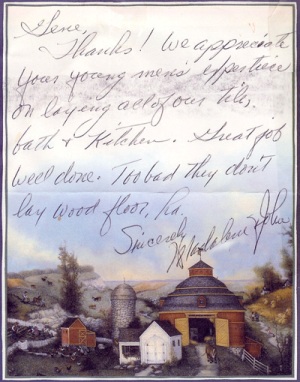 Gene,
Thanks! We appreciate
your young men's expertiece
on laying all of our tile,
bath & Kitchen. Great job
well done. Too bad they don't
lay wood floor, ha.
Sincerely
Magdalene John